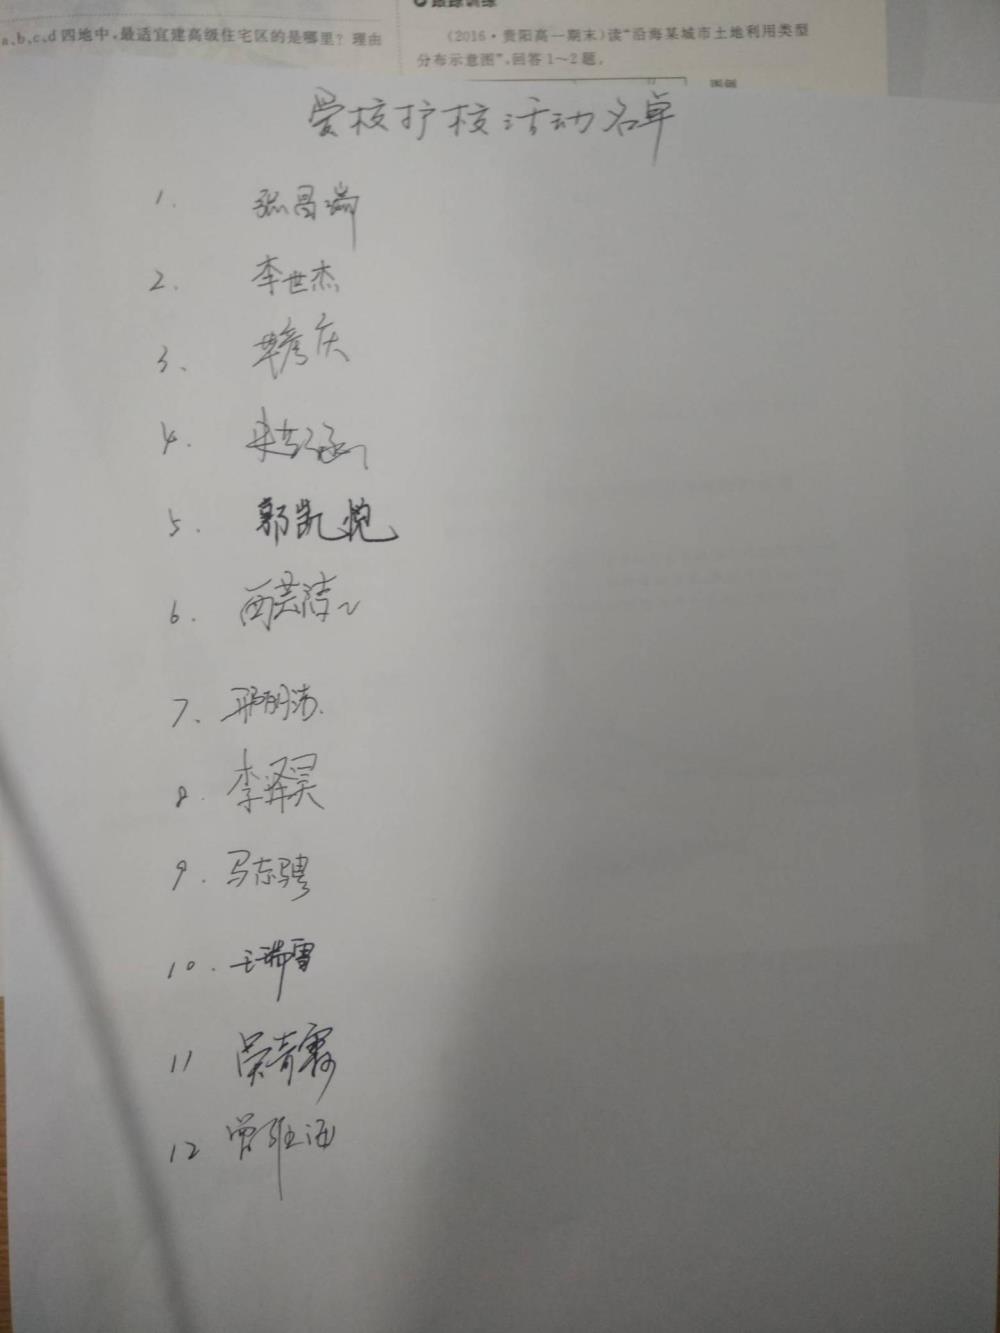 a、b、c、d四地中,最适宜建高级住宅区的是哪里? 理由
跟踪训练
(2016·贵阳高一期末)读“沿海某城市土地利用类型
分布示意图”,回答1~2题。
图例
爱校护校活动名单
1. 张昌瑞
2. 李世杰
3. 庆
4. 涵
5. 郭凯悦
6. 洁
7. 邢明涛
8. 李泽昊
9. 马志骋
10. 王瑞雪
11 吴青霖
12 曾